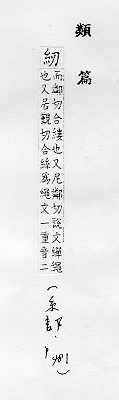 類篇
紉
而鄰切合縷也又尼鄰切說文繟繩
也又居覲切合絲為繩文一重音二
(糸部·P481)